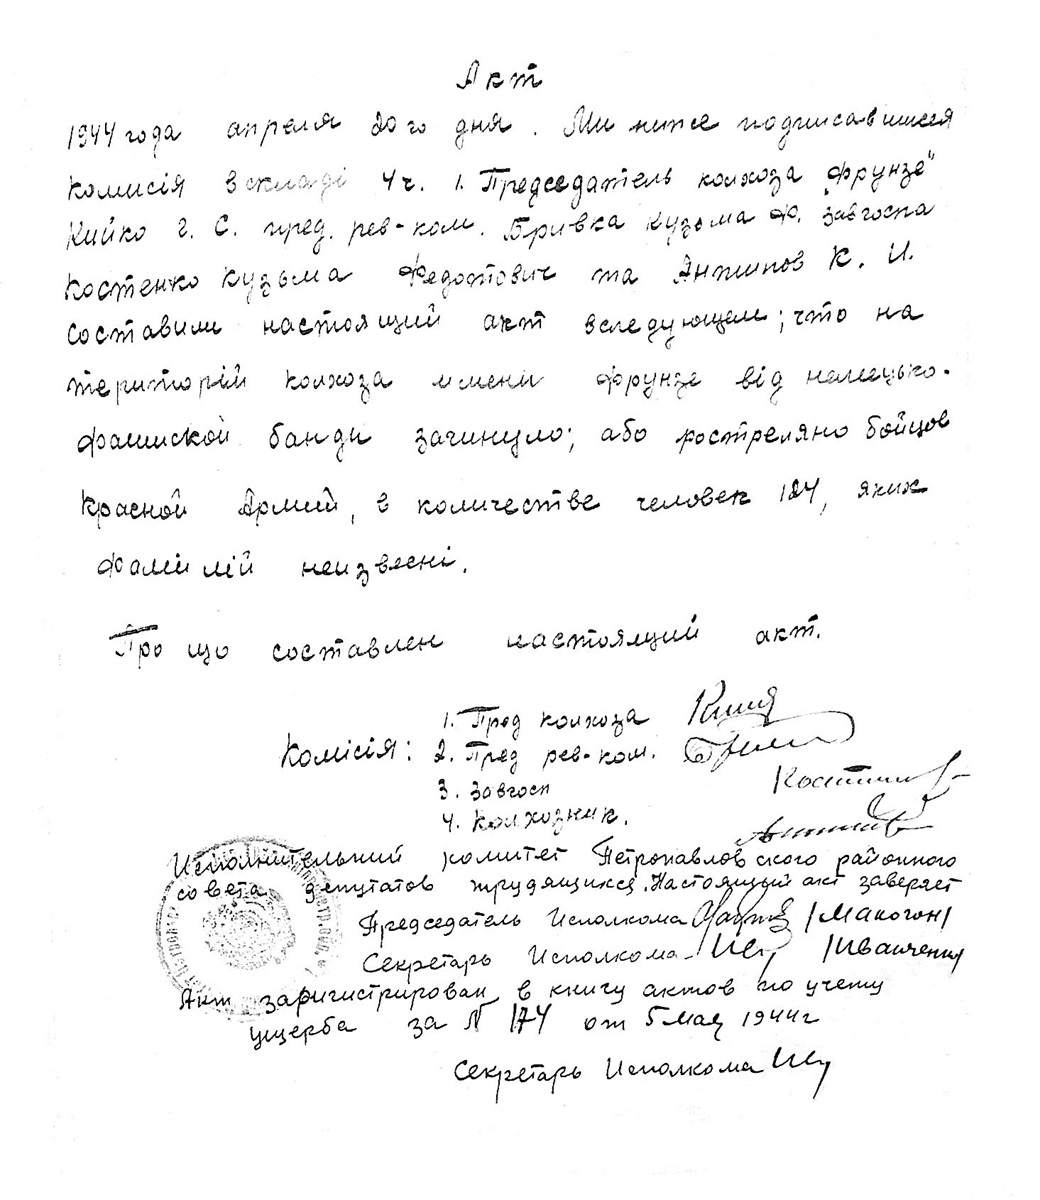 Акт
1944 года апреля 20го дня. Ми ниже подписавшиеся
комисія в складі 4ч. 1. Председатель колхоза „Фрунзе"
Кийко Г. С. пред. рев-ком. Бривка Кузьма Ф. завгоспа
Костенко Кузьма Федотович та Антипов К. И.
составили настоящий акт вследующем; что на
територій колхоза имени Фрунзе від немецько-
фашиской банди загинуло; або ростреляно бойцов
Красной Армий, в количестве человек 124, яких
фамілій неизвесні.
Про що составлен настоящий акт.
Комісія: 1. Пред колхоза
2. Пред рев-ком.
3. Завгосп
4. Колхозник.
Исполнительний комитет Петропавловского районного
совета депутатов трудящихся. Настоящий акт заверяет
Председатель Исполкома /Макогон/
Секретарь Исполкома /Иванченко/
Акт заригистрирован в книгу актов по учету
ущерба за N 174 от 5 мая 1944г
Секретарь Исполкома